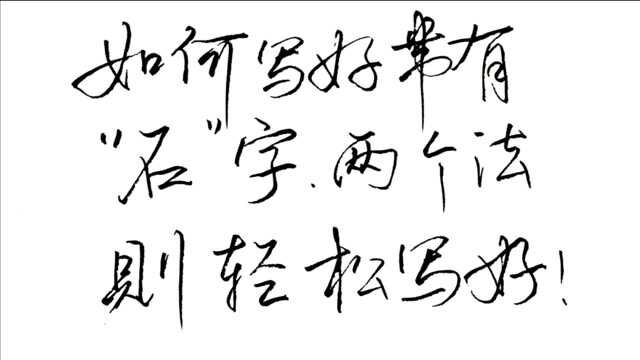 如何写好带有
“石”字.两个法
则轻松写好！